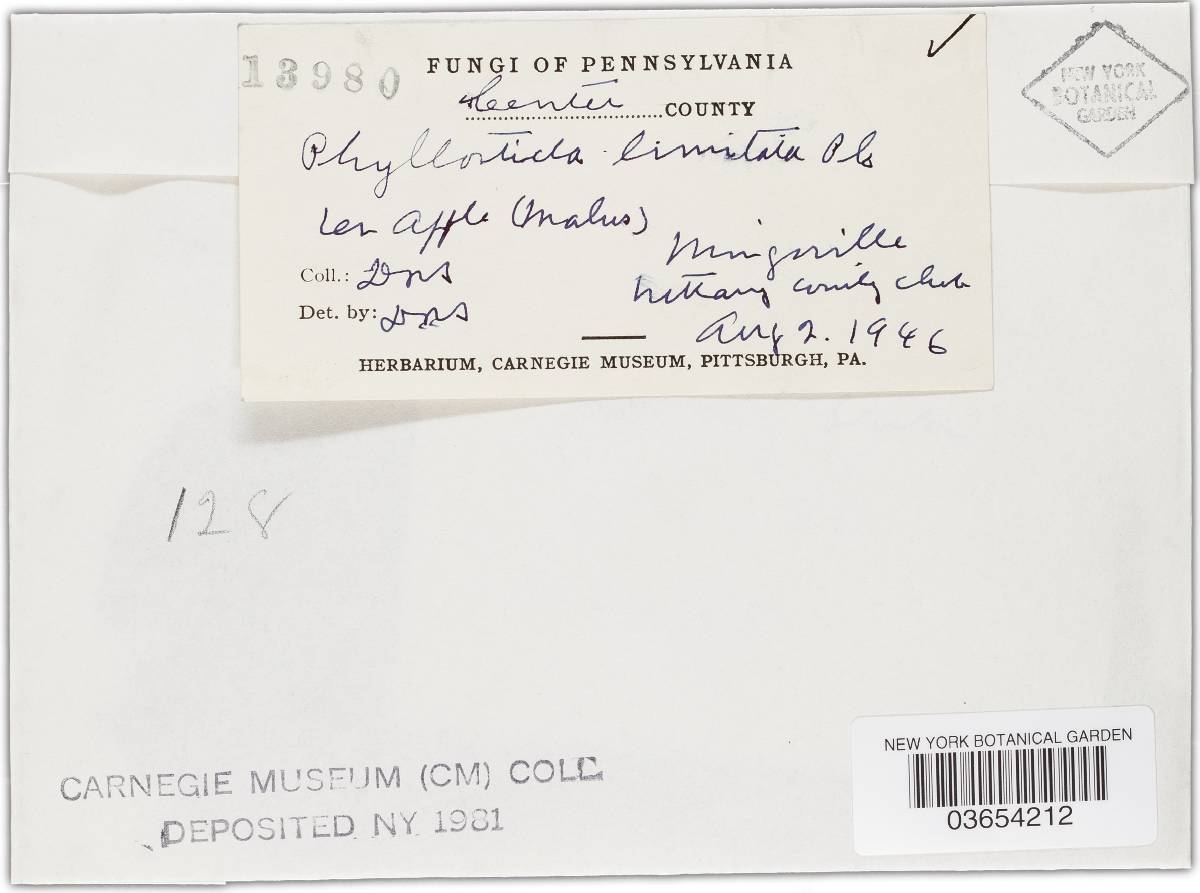 13980
FUNGI OF PENNSYLVANIA
Center COUNTY
Phyllosticta limitata Pk
on Apple (Malus)
Mingoville
Nittany County Club
Coll.:
Det. by:
Aug 2. 1946
HERBARIUM, CARNEGIE MUSEUM, PITTSBURGH, PA.
NEW YORK
BOTANICAL
GARDEN
128
CARNEGIE MUSEUM (CM) COLL
DEPOSITED NY 1981
NEW YORK BOTANICAL GARDEN
03654212